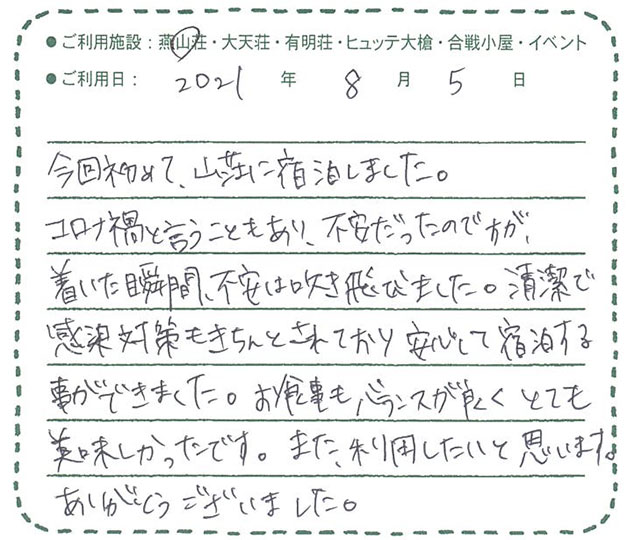 ● ご利用施設：燕山荘・大天荘・有明荘・ヒュッテ大槍・合戦小屋・イベント
● ご利用日： 2021 年 8 月 5 日
今回初めて、山荘に宿泊しました。
コロナ禍と言うこともあり、不安だったのですが、
着いた瞬間、不安は吹き飛びました。清潔で
感染対策もきちんとされており安心して宿泊する
事ができました。お食事もバランスが良くとても
美味しかったです。また、利用したいと思います。
ありがとうございました。